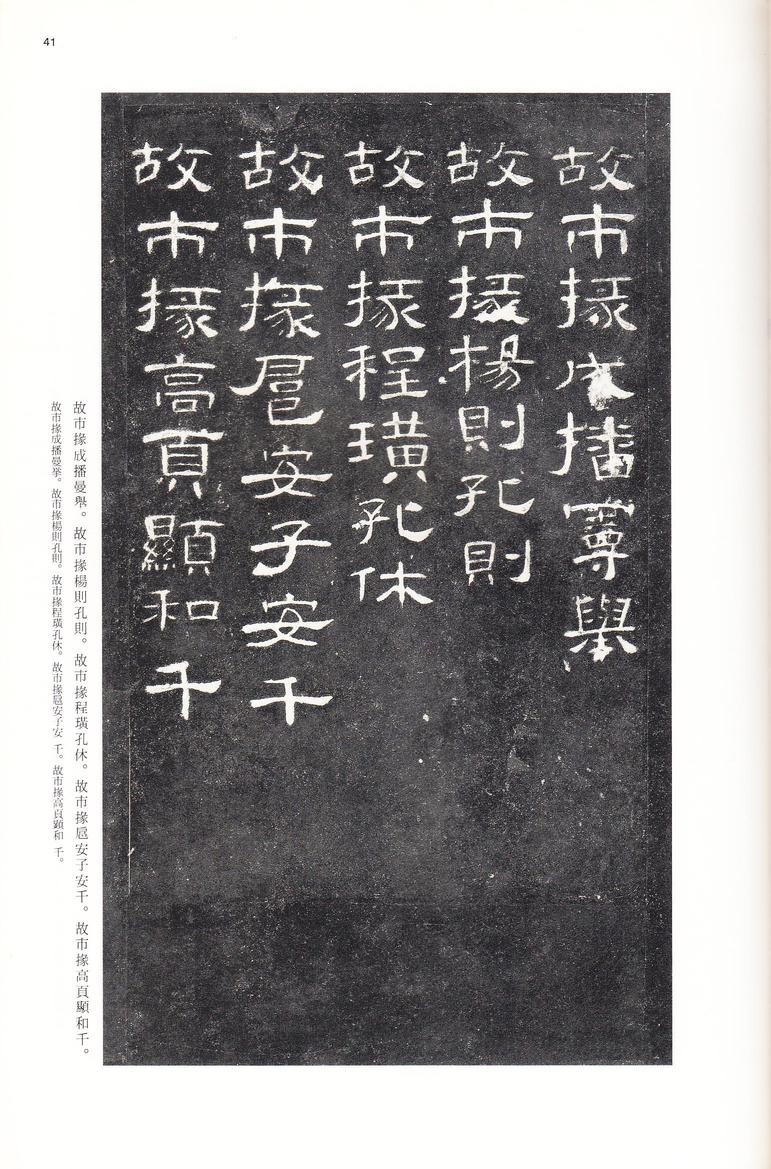 41
故市掾成播曼舉
故市掾楊則孔則
故市掾程璜孔休
故市掾扈安子安千
故市掾高頁顯和千
故市掾成播曼舉。故市掾楊則孔則。故市掾程璜孔休。故市掾扈安子安千。故市掾高頁顯和千。
故市掾成播曼挙。故市掾楊則孔則。故市掾程璜孔休。故市掾扈安子安 千。故市掾高頁顕和 千。